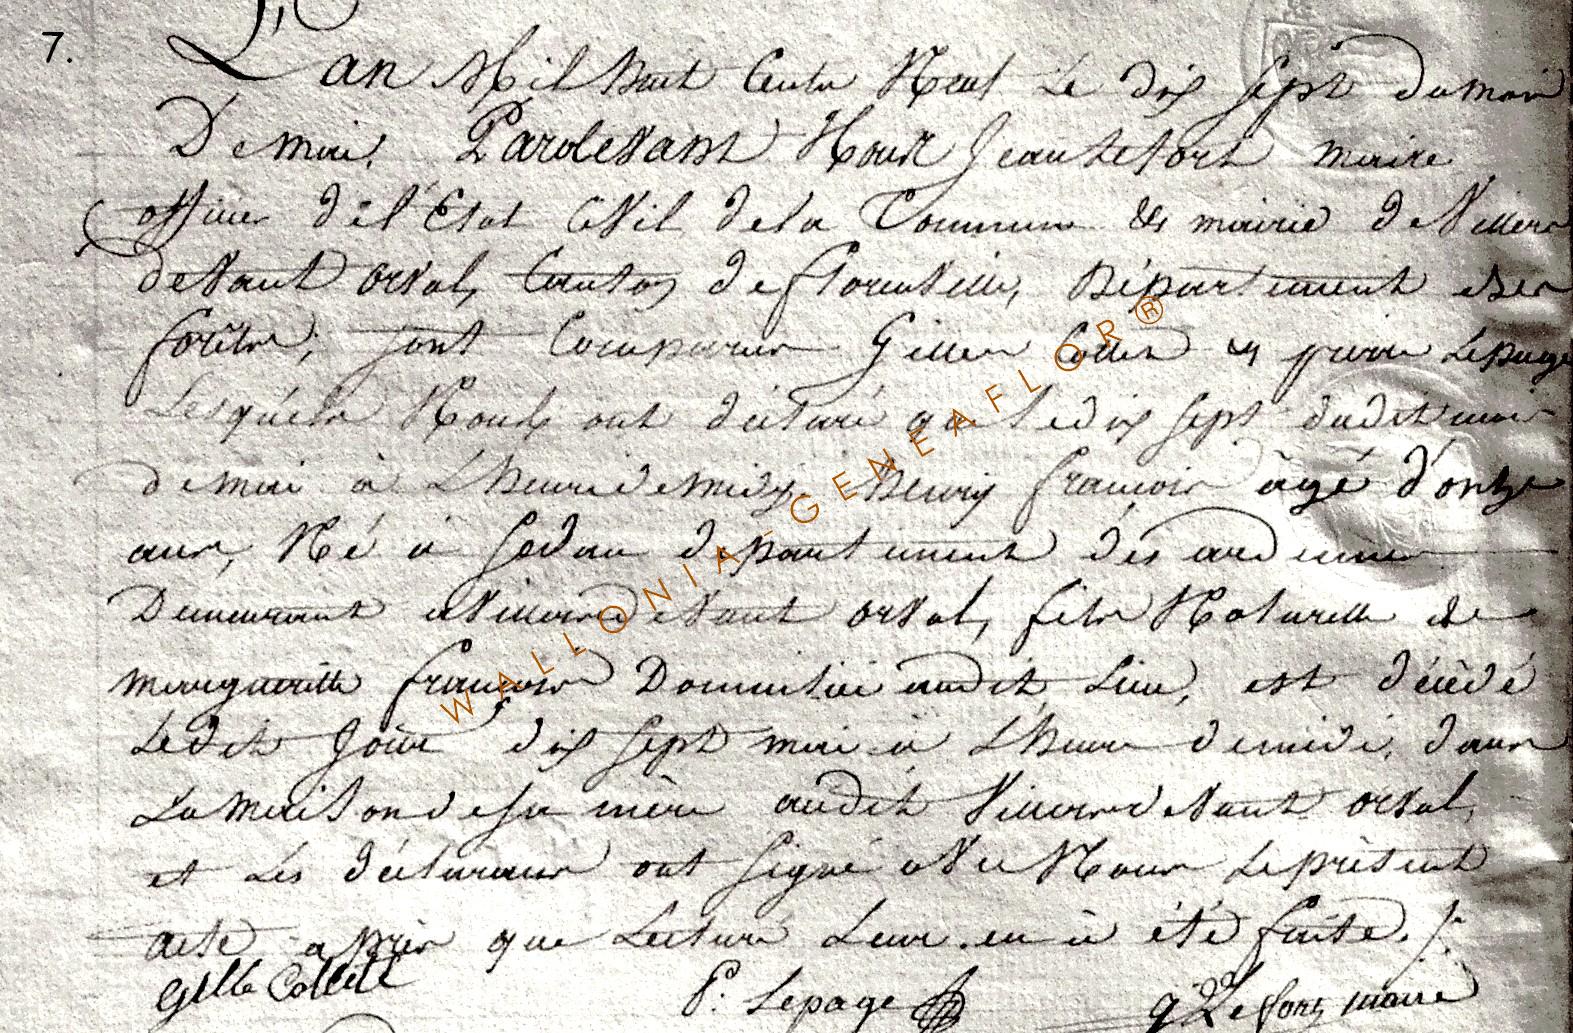 7.
L'an Mil huit Cents Neuf Le dix sept du moi
De mai. Pardevant Nous Jean Lefort maire
officier de l'État Civil de la Commune & mairie de Villers
devant orval, Canton de florenville, Département des
forêts, sont Comparus Gilles Collet & pierre Lepage
Lesquels Nous ont déclaré que le dix sept dudit mois
de mai à L'heure de midy, Henry françois âgé d'onze
ans, Né à Sedan département des ardennes
Demeurant a Villers devant orval, fils Naturelle de
margueritte françois Domiciliée audit Lieu, est décédé
Ledit Jour dix sept mai à L'heure de midi, dans
La maison de sa mère audit Villers devant orval,
et Les déclarans ont signé avec Nous Le présent
acte après que Lecture Leur en à été faite.
Gille Collett
P. Lepage
J Lefort maire
WALLONIA-GENEAFLOR®